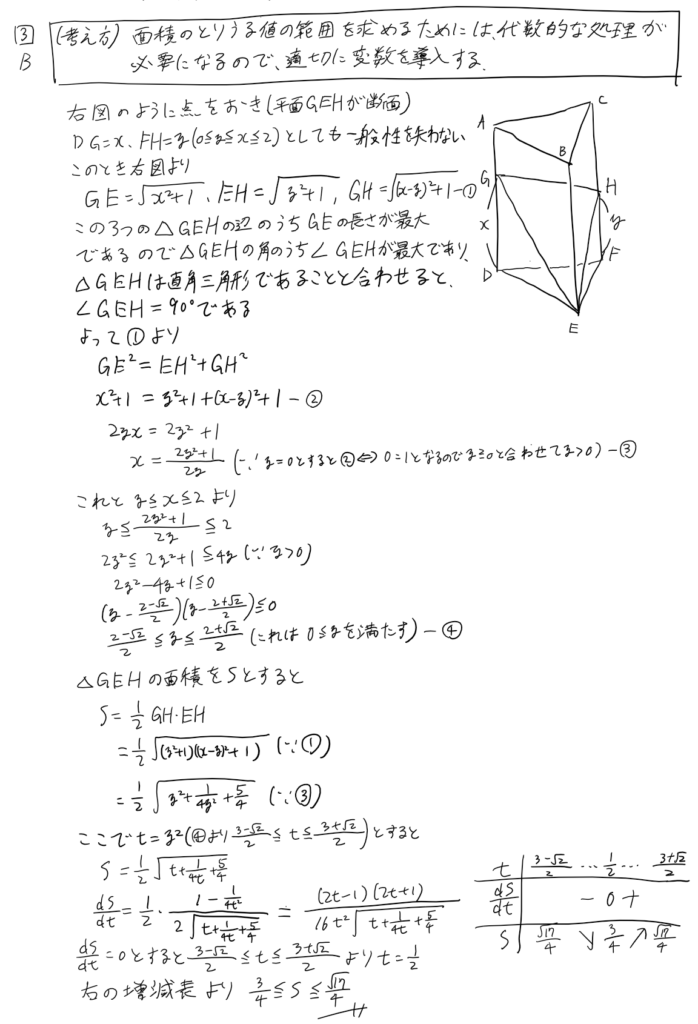 3
B
(考え方) 面積のとりうる値の範囲を求めるためには、代数的な処理が
必要になるので、適切に変数を導入する。
右図のように点をおき(平面GEHが断面)
DG=x、FH=y(0≦y≦x≦2)としても一般性を失わない
このとき右図より
GE=√(x²+1)、EH=√(y²+1), GH=√((x-y)²+1) ー①
この3つの△GEHの辺のうちGEの長さが最大
であるので△GEHの角のうち∠GEHが最大であり、
△GEHは直角三角形であることと合わせると、
∠GEH=90°である
よって①より
GE²=EH²+GH²
x²+1=y²+1+(x-y)²+1 ー②
2yx=2y²+1
x=(2y²+1)/2y (∵y=0とすると②⇔0=1となるのでy≧0と合わせてy>0) ー③
これとy≦x≦2より
y≦(2y²+1)/2y≦2
2y²≦2y²+1≦4y (∵y>0)
2y²-4y+1≦0
(y-(2-√2)/2)(y-(2+√2)/2)≦0
(2-√2)/2≦y≦(2+√2)/2 (これは0≦yを満たす) ー④
△GEHの面積をSとすると
S=1/2 GH・EH
=1/2√((y²+1)((x-y)²+1)) (∵①)
=1/2√(y²+1/4y²+5/4) (∵③)
ここでt=y²(④より(3-√2)/2≦t≦(3+√2)/2)とすると
S=1/2√(t+1/4t+5/4)
dS/dt=1/2・(1-1/4t²)/(2√(t+1/4t+5/4))=(2t-1)(2t+1)/(16t²√(t+1/4t+5/4))
dS/dt=0とすると(3-√2)/2≦t≦(3+√2)/2よりt=1/2
右の増減表より 3/4≦S≦√17/4
A
C
B
G
H
x
y
D
F
E
t (3-√2)/2 … 1/2 … (3+√2)/2
dS/dt - 0 +
S √17/4 ↘ 3/4 ↗ √17/4